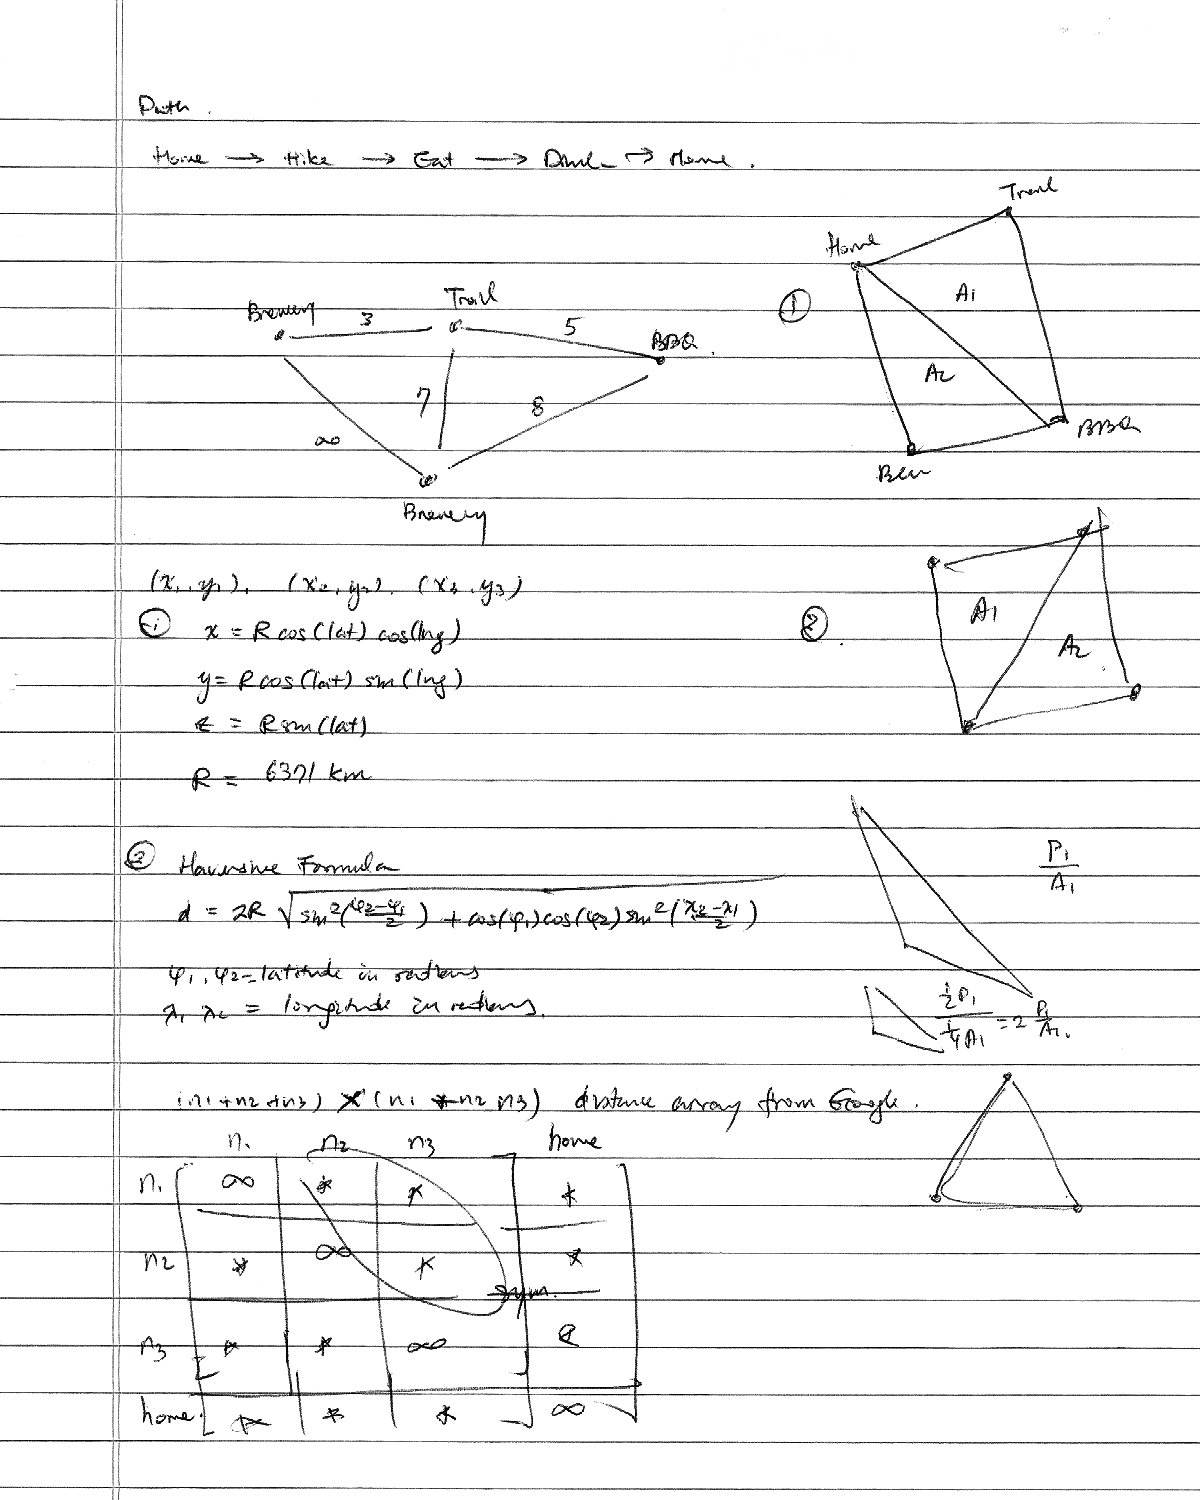 Path.
Home → Hike → Eat → Drink → Home.
Trail
Home
A1
①
A2
BBQ
Beer
Brewery 3 Trail 5 BBQ.
7 8
∞
Brewery
(x1, y1), (x2, y2), (x3, y3)
① x = R cos(lat) cos(lng)
y = R cos(lat) sin(lng)
z = R sin(lat)
R = 6371 km
②.
A1
A2
② Haversine Formula
d = 2R √sin²((φ2-φ1)/2) + cos(φ1)cos(φ2)sin²((λ2-λ1)/2)
φ1, φ2 = latitude in radians
λ1 λ2 = longitude in radians.
P1/A1
½P1/¼A1 = 2 P1/A1.
(n1+n2+n3) × (n1+n2 n3) distance array from Google.
n1 n2 n3 home
n1 ∞ * * *
n2 * ∞ * *
sym.
n3 * * ∞
home. * * * ∞